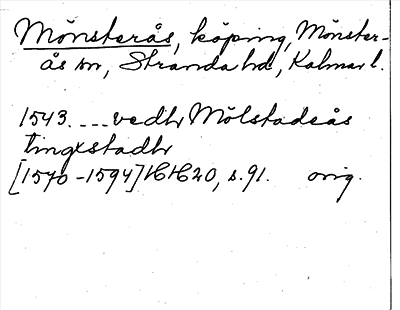 Mönsterås, köping, Mönster-
ås sn, Stranda hd, Kalmar l.
1543. ... vedh Mölstadeås
tingxstadh
[1570-1594] HH 20, s. 91. orig.